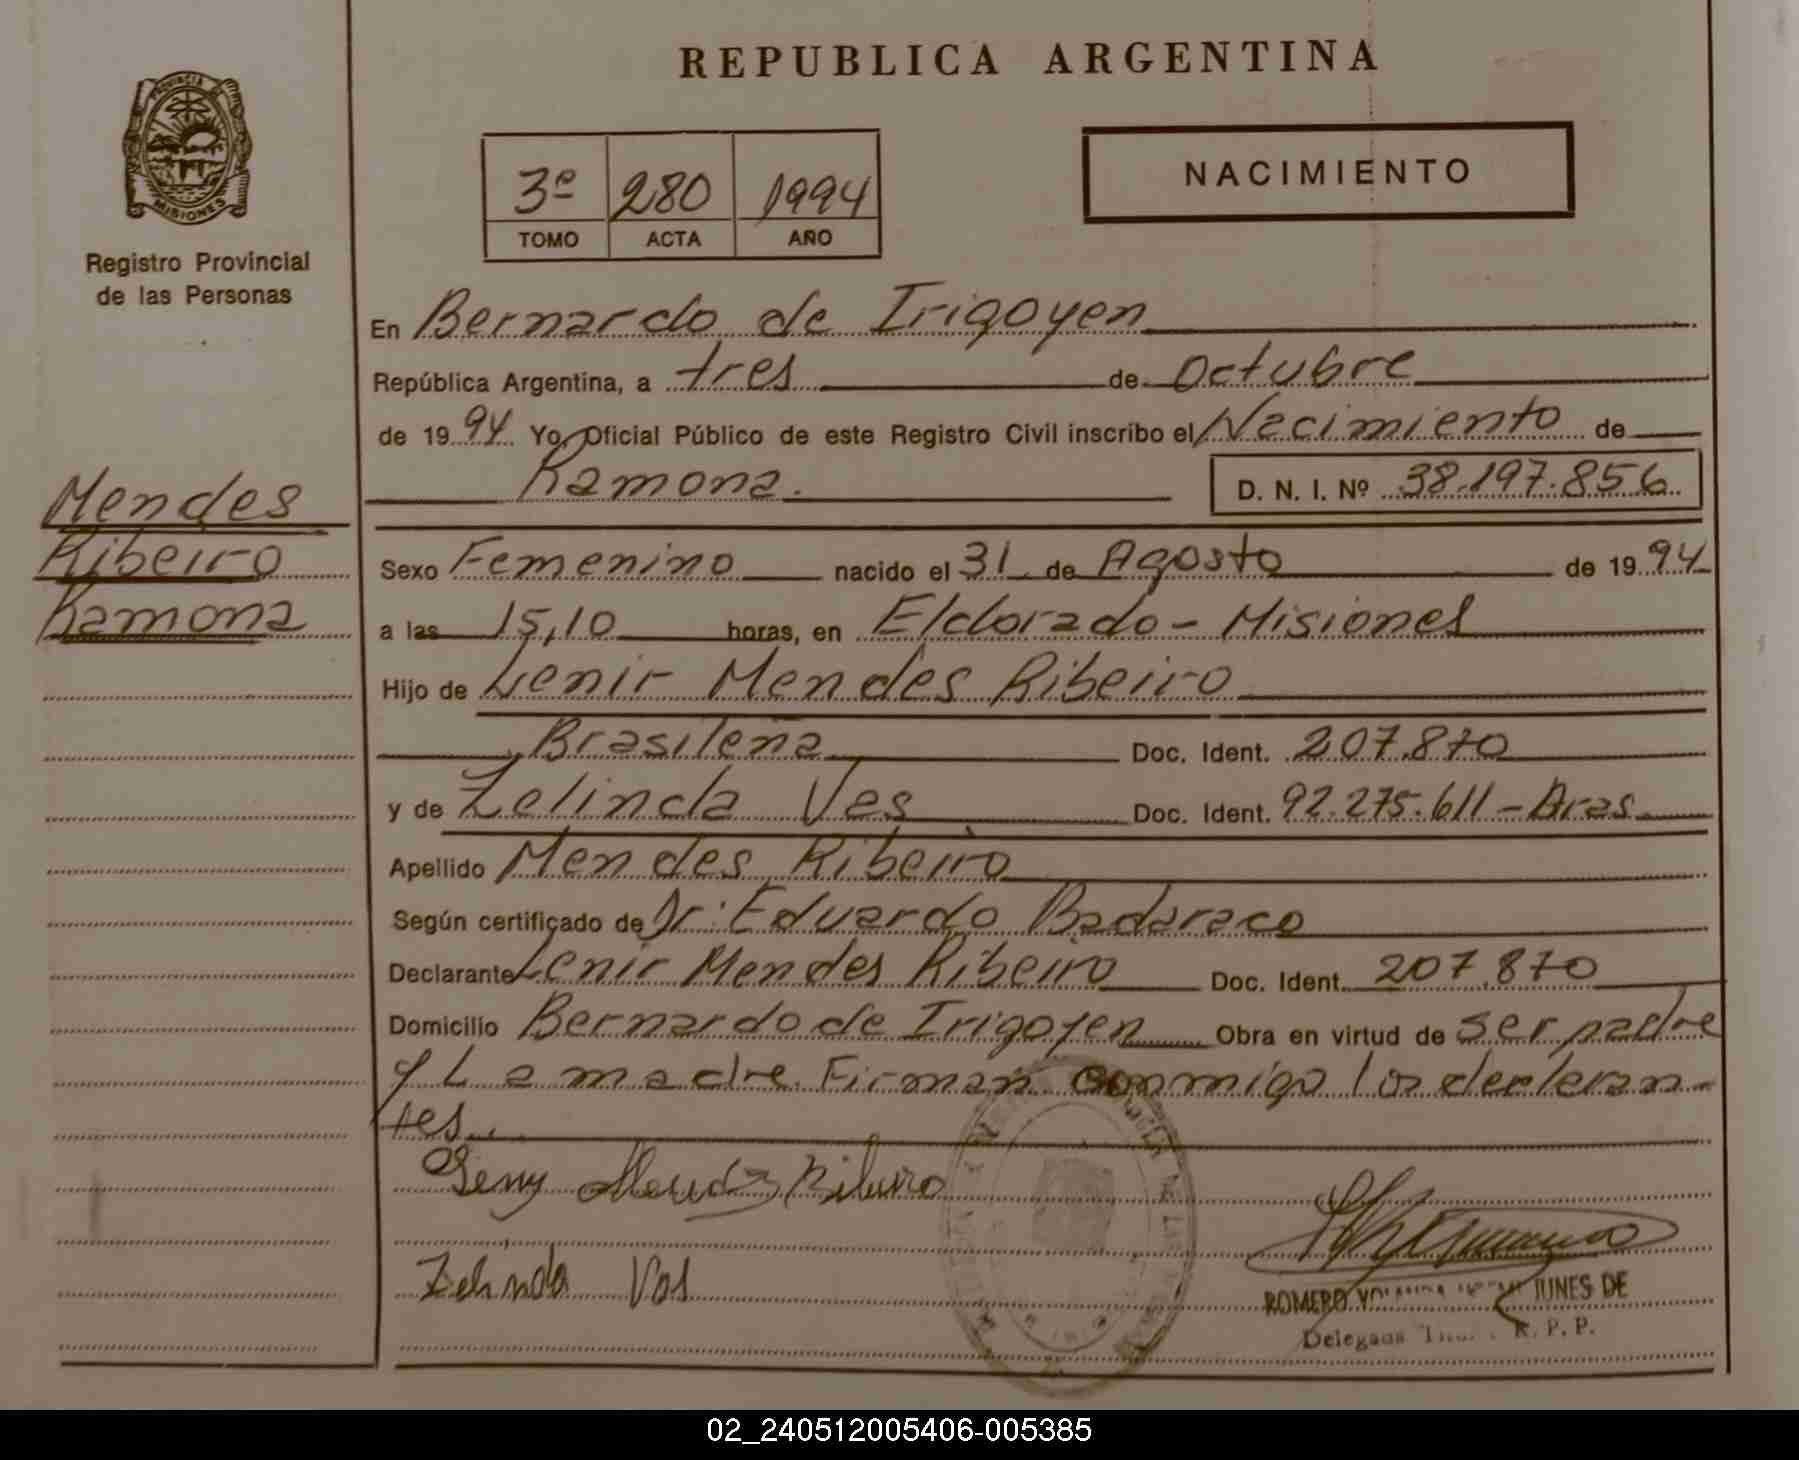 PROVINCIA DE
MISIONES
Registro Provincial
de las Personas
Mendes
Ribeiro
Ramona
REPUBLICA ARGENTINA
3º 280 1994
TOMO ACTA AÑO
NACIMIENTO
En Bernardo de Irigoyen
República Argentina, a tres de Octubre
de 1994 Yo, Oficial Público de este Registro Civil inscribo el Nacimiento de
Ramona. D. N. I. Nº 38.197.856
Sexo Femenino nacido el 31 de Agosto de 1994
a las 15,10 horas, en Eldorado - Misiones
Hijo de Lenir Mendes Ribeiro
Brasileña Doc. Ident. 207.870
y de Zelinda Vas Doc. Ident. 92.275.611 - Bras.
Apellido Mendes Ribeiro
Según certificado de Dr: Eduardo Badaraco
Declarante Lenir Mendes Ribeiro Doc. Ident. 207.870
Domicilio Bernardo de Irigoyen Obra en virtud de ser padre
y La madre. Firman conmigo los declaran-
tes.
Mendes Ribeiro
Zelinda Vas
ROMERO DE
R. P. P.
02_240512005406-005385